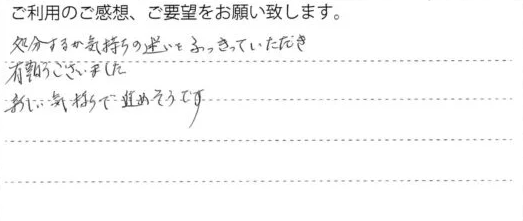 ご利用のご感想、ご要望をお願い致します。
処分するか気持ちの迷いをふっきっていただき
有難うございました
新しい気持ちで進めそうです